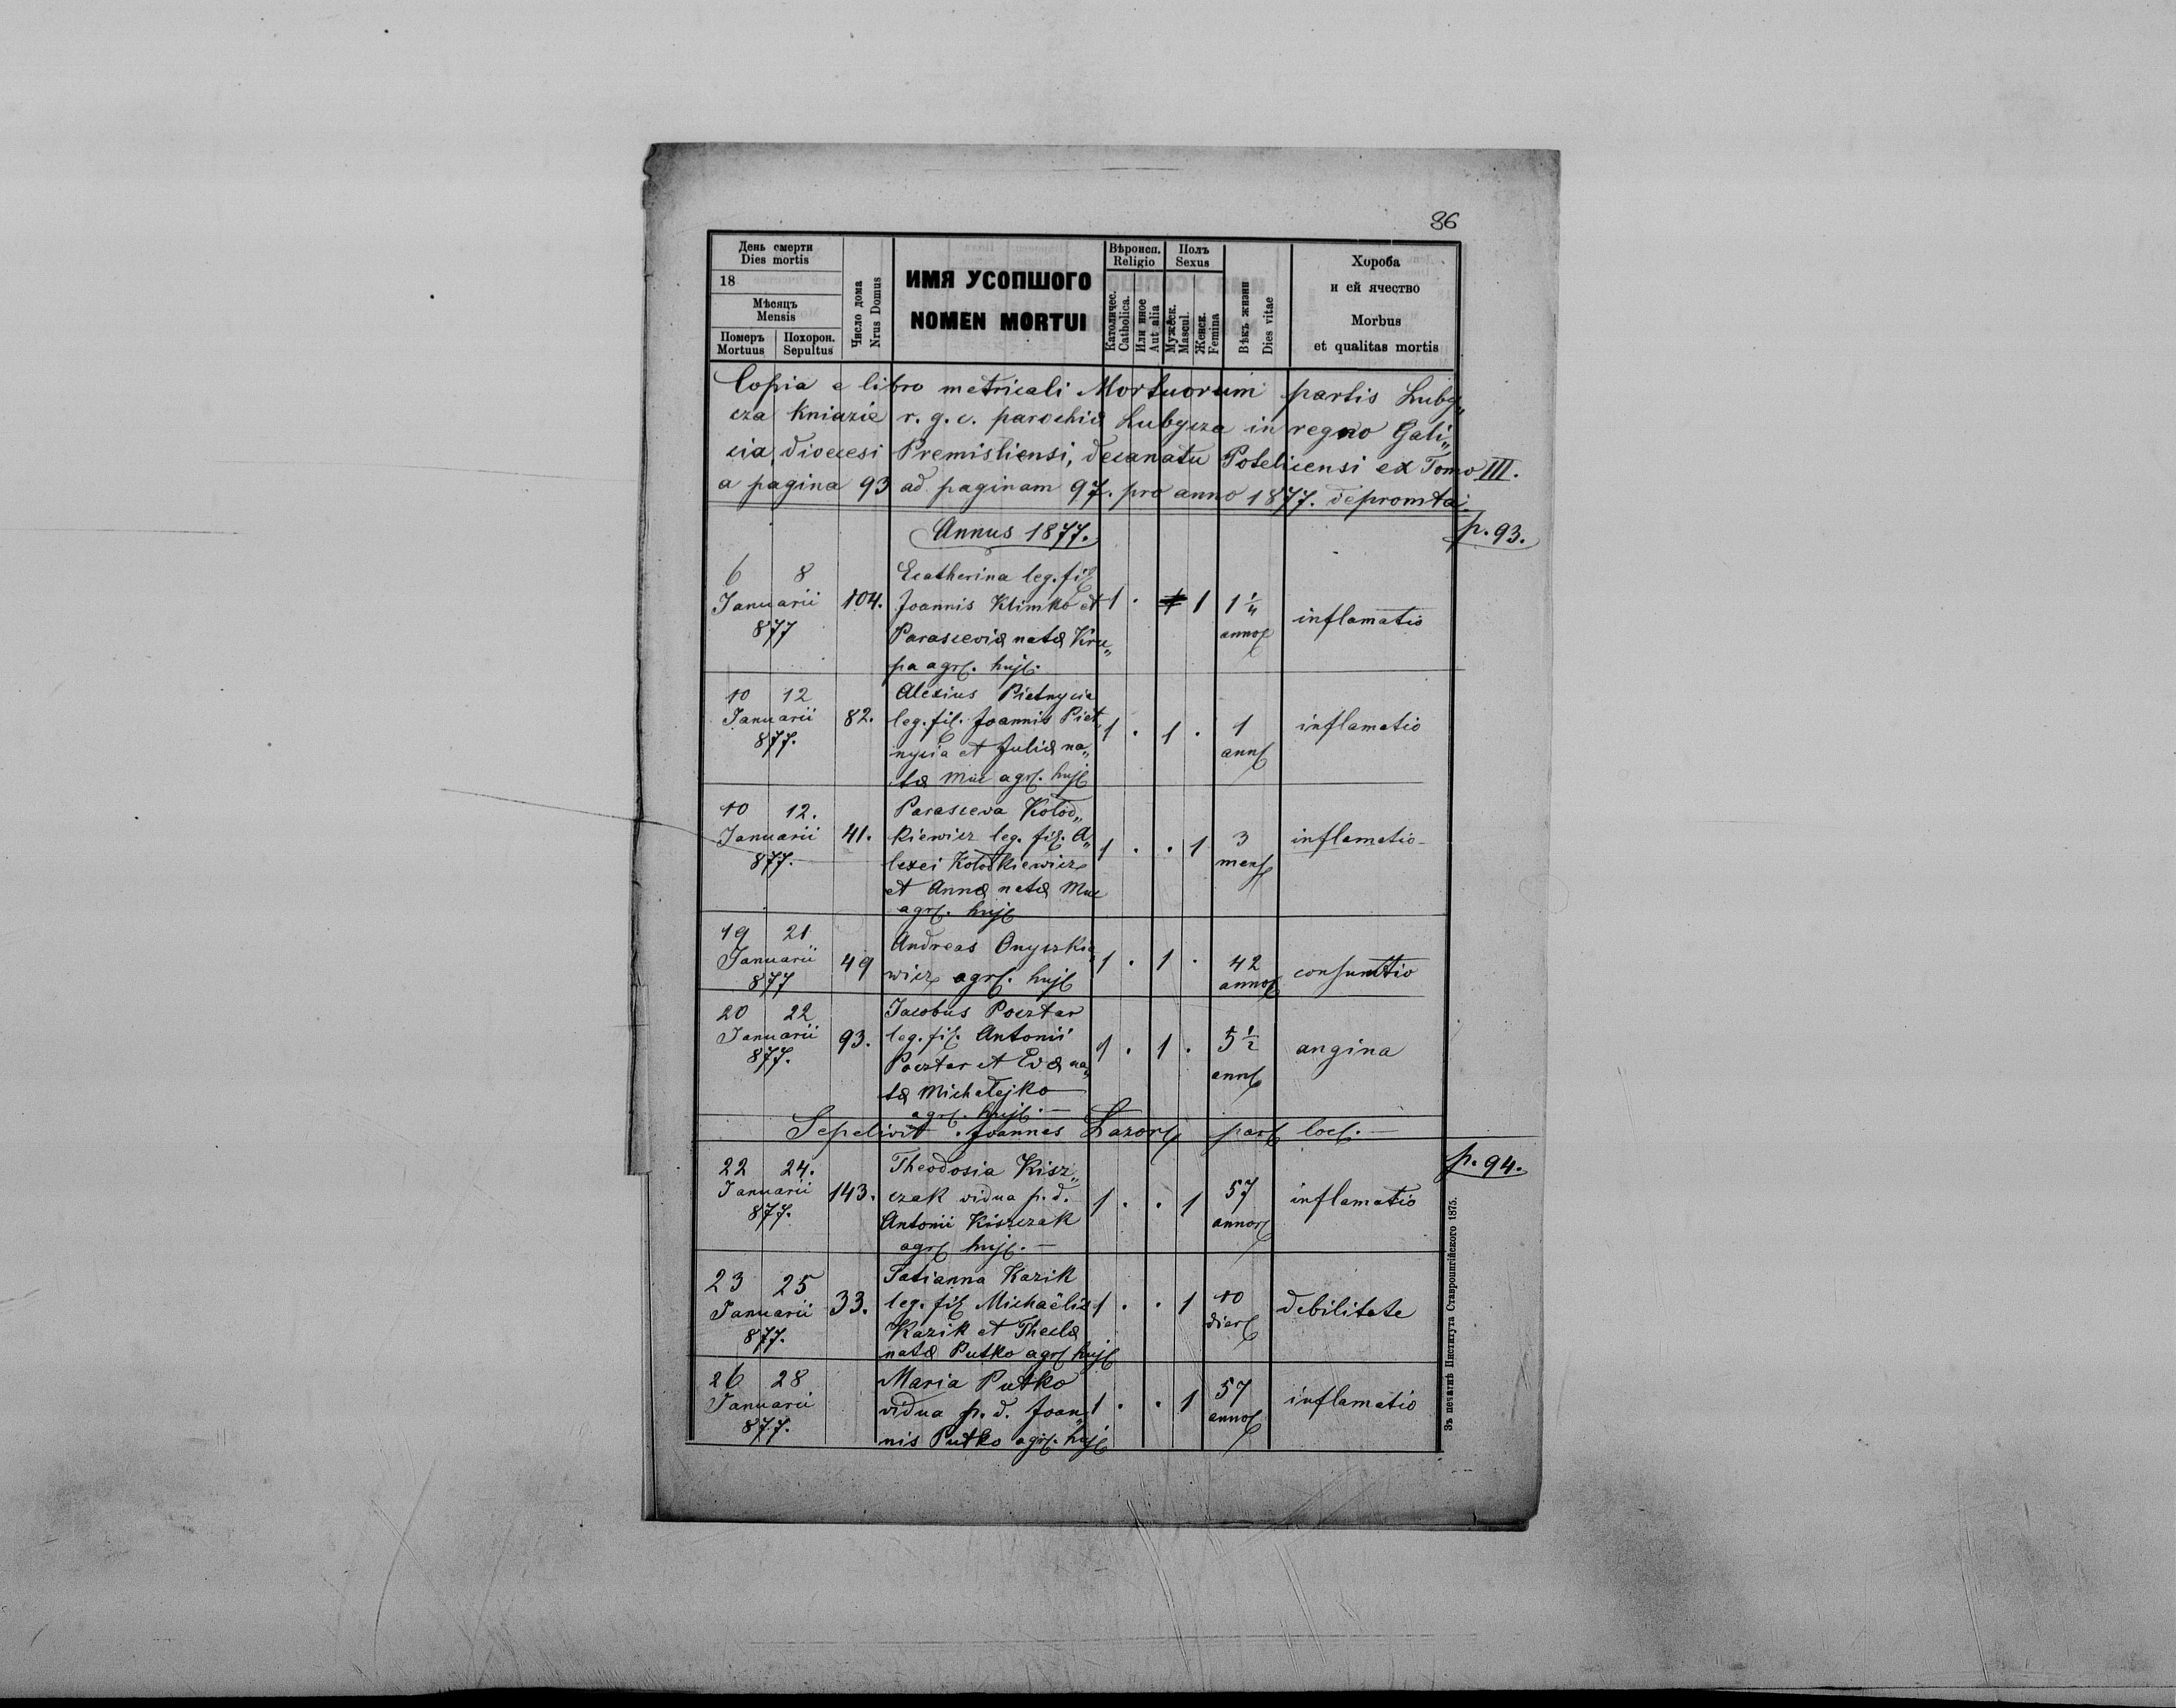 86
День смерти
Dies mortis
18
Мѣсяцъ
Mensis
Померъ
Mortuus
Похорон.
Sepultus
Число дома
Nrus Domus
ИМЯ УСОПШОГО
NOMEN MORTUI
Вѣроисп.
Religio
Католичес.
Catholica.
Или иное
Aut alia
Полъ
Sexus
Мужеск.
Mascul.
Женск.
Femina
Вѣкъ жизни
Dies vitae
Хороба
и ей ячество
Morbus
et qualitas mortis
Copia e libro metricali Mortuorum partis Luby„
cza Kniazie r. g. c. parochiæ Lubycza in regno Gali„
cia, diœcesi Premisliensi, decanatu Potelicensi ex Tomo III.
a pagina 93 ad paginam 97. pro anno 1877. depromta.
Annus 1877.
p. 93.
6 8
Januarii
877
104.
Ecatherina leg. fil
Joannis Klimko et
Parasceviæ natæ Kru„
pa agr. huj.
1 . 1 1
1 1/4
annor
inflamatio
10 12
Januarii
877.
82.
Alexius Pietnycia
leg. fil. Joannis Piet„
nycia et Juliæ na„
tæ Muc agr. huj
1 . 1 .
1
ann
inflamatio
10 12.
Januarii
877.
41.
Parasceva Kolod„
kiewicz leg. fil. A„
lexei Kolodkiewicz
et Annæ natæ Muc
agr. huj
1 . . 1
3
mens
inflamatio
19 21
Januarii
877
49
Andreas Onyszkie„
wicz agr. huj
1 . 1 .
42
annor
consumtio
20 22
Januarii
877.
93.
Jacobus Pocztar
leg. fil. Antonii
Pocztar et Evæ na„
tæ Michalejko
agr. huj.
1 . 1 .
5 1/2
ann
angina
Sepelivit Joannes Lazor par loc.
p. 94.
22 24.
Januarii
877.
143.
Theodosia Kisz„
czak vidua p. d.
Antonii Kiszczak
agr huj.
1 . . 1
57
annor
inflamatio
23 25
Januarii
877.
33.
Tatianna Kazik
leg. fil Michaëlis
Kazik et Theclæ
natæ Putko agr huj
1 . . 1
10
dier
debilitate
26 28
Januarii
877.
Maria Putko
vidua p. d. Joan„
nis Putko agr. huj
1 . . 1
57
annor
inflamatio
Зъ печатнѣ Института Ставропигійского 1875.